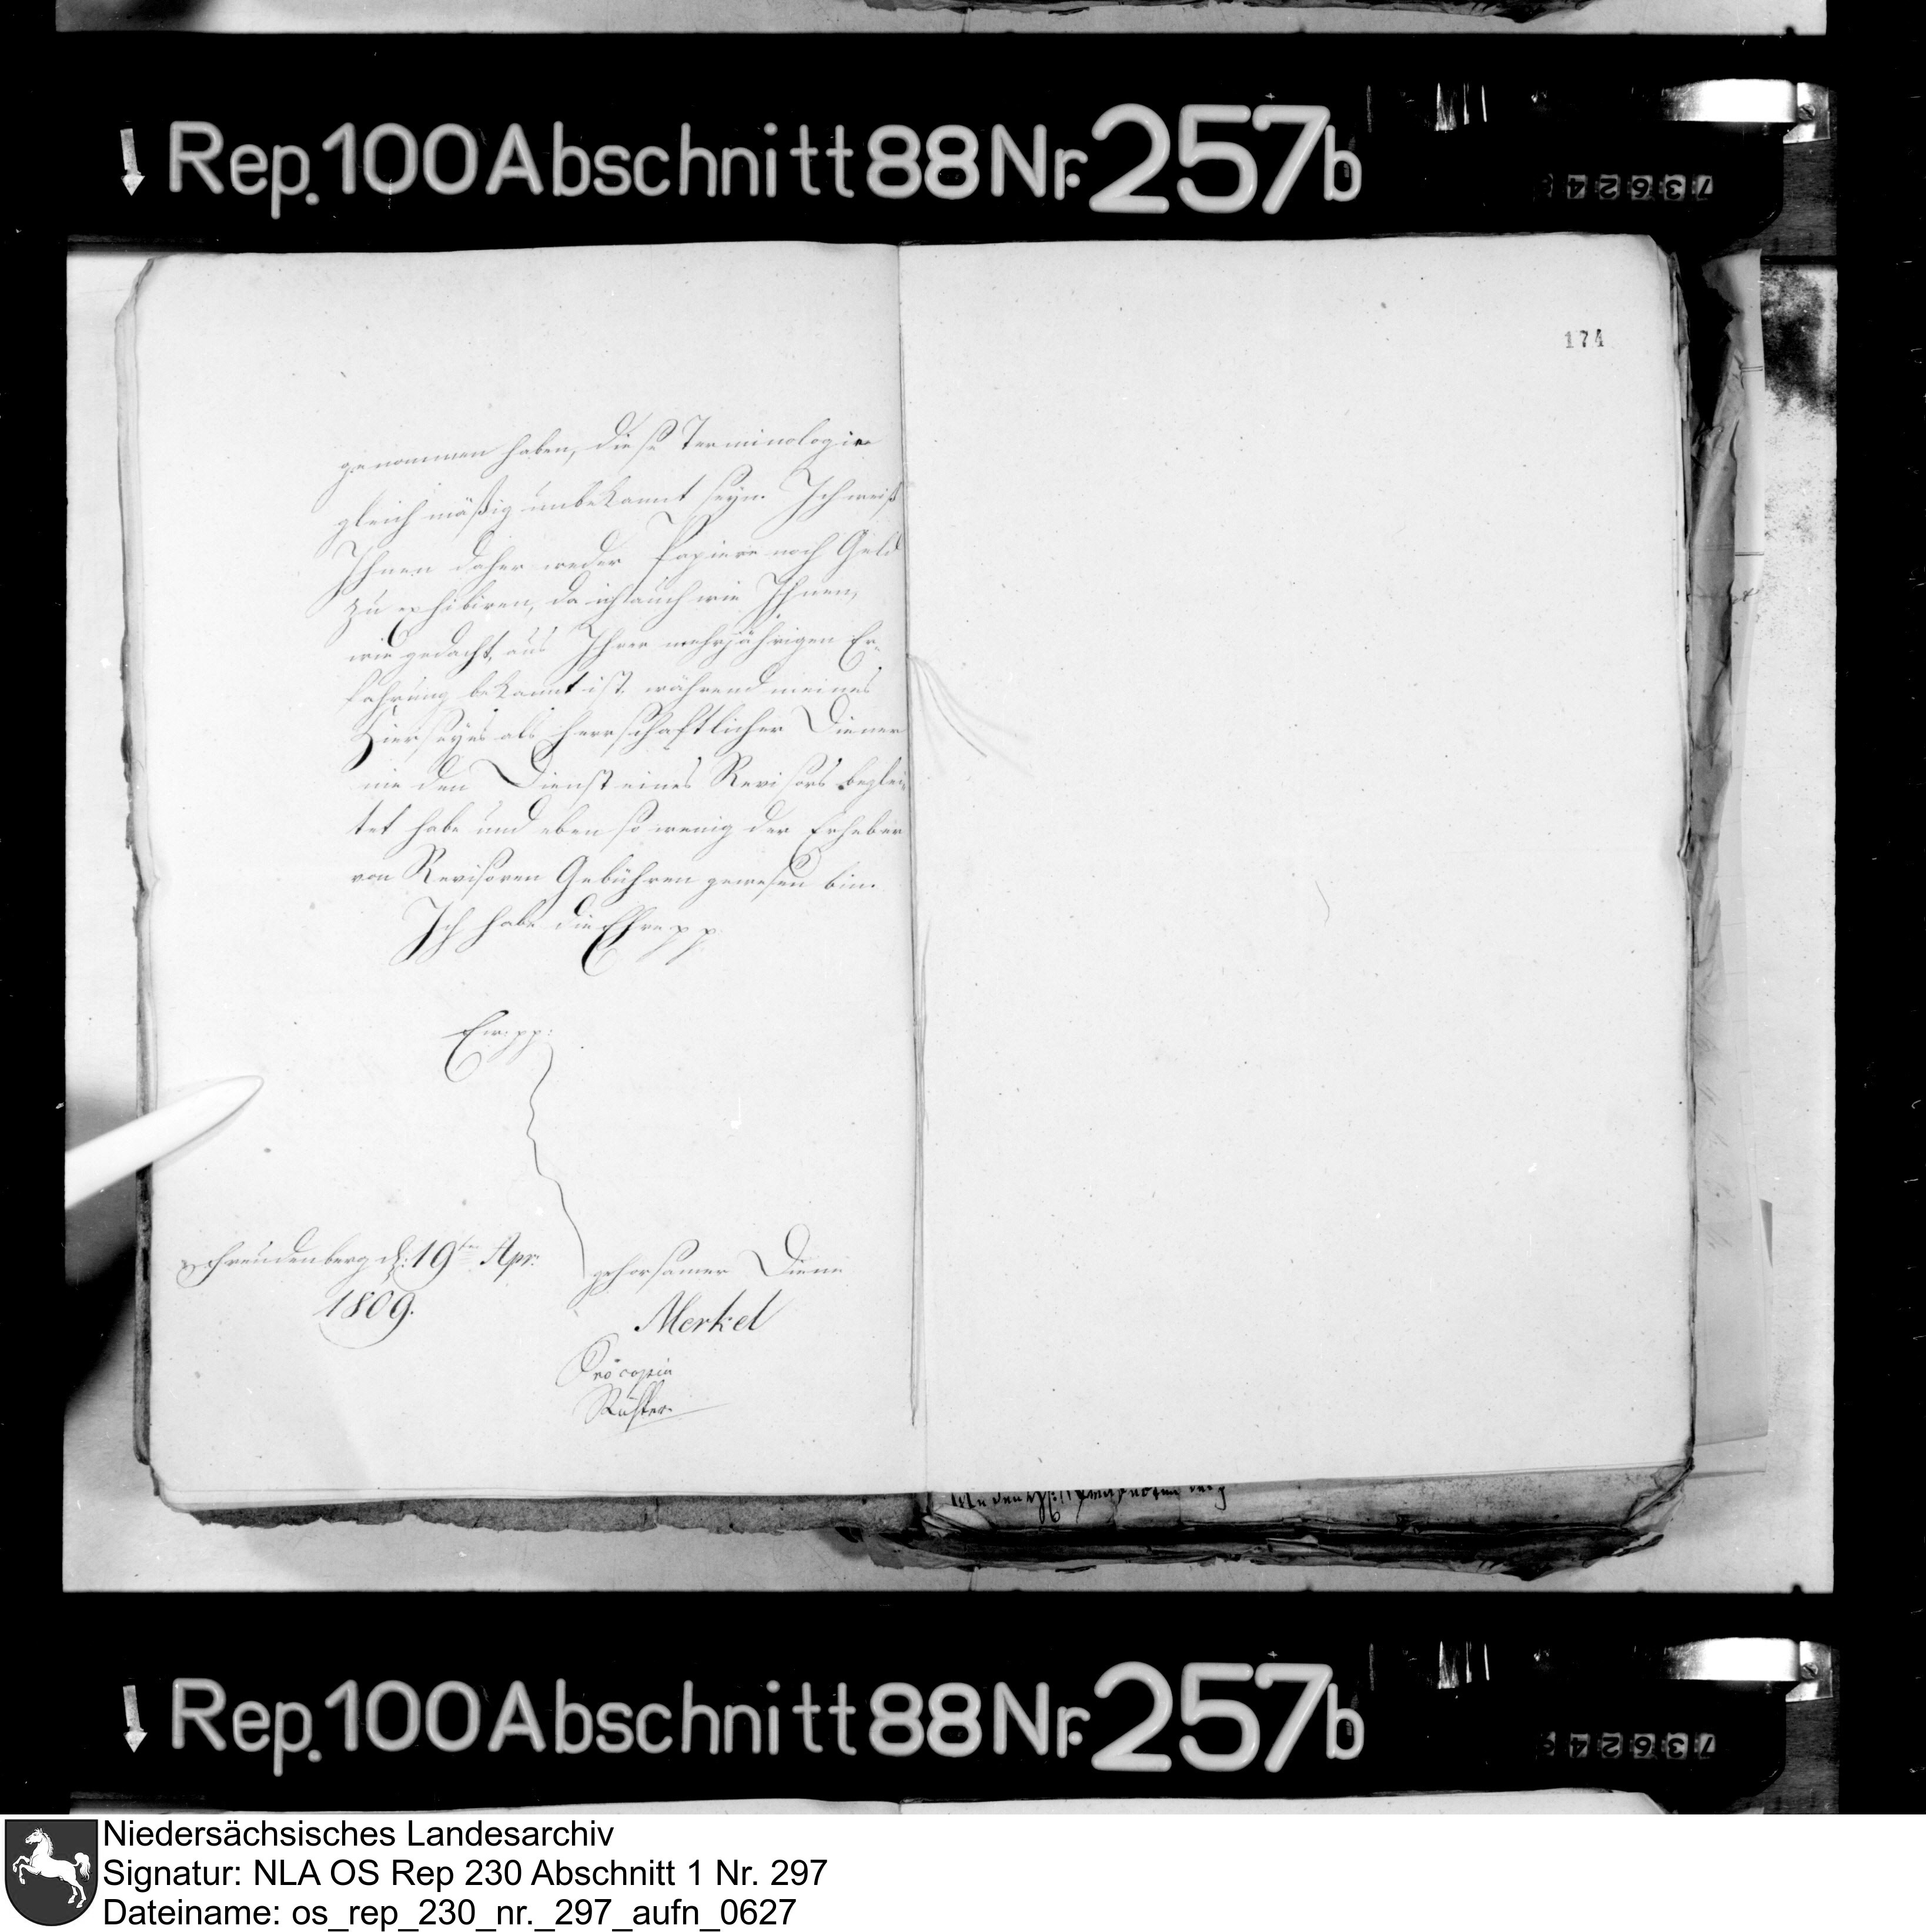 Rep. 100 Abschnitt 88 Nr. 257b
73624
174
genommen haben, diese Terminologie
gleichmäßig unbekannt seyn. Ich weiß
Ihnen daher weder Papiere noch Geld
zu exhibiren, da ich auch wie Ihnen,
wie gedacht, aus Ihrer mehrjährigen Er-
fahrung bekannt ist, während meines
Hierseyns als herrschaftlicher Diener
nie den Dienst eines Revisors beglei-
tet habe und eben so wenig der Erheber
von Revisoren Gebühren gewesen bin.
Ich habe die Ehre pp
Ew. pp:
Freudenberg d. 19ten Apr:
1809.
gehorsamer Diener
Merkel
Pro copia
Rep. 100 Abschnitt 88 Nr. 257b
73624
Niedersächsisches Landesarchiv
Signatur: NLA OS Rep 230 Abschnitt 1 Nr. 297
Dateiname: os_rep_230_nr._297_aufn_0627